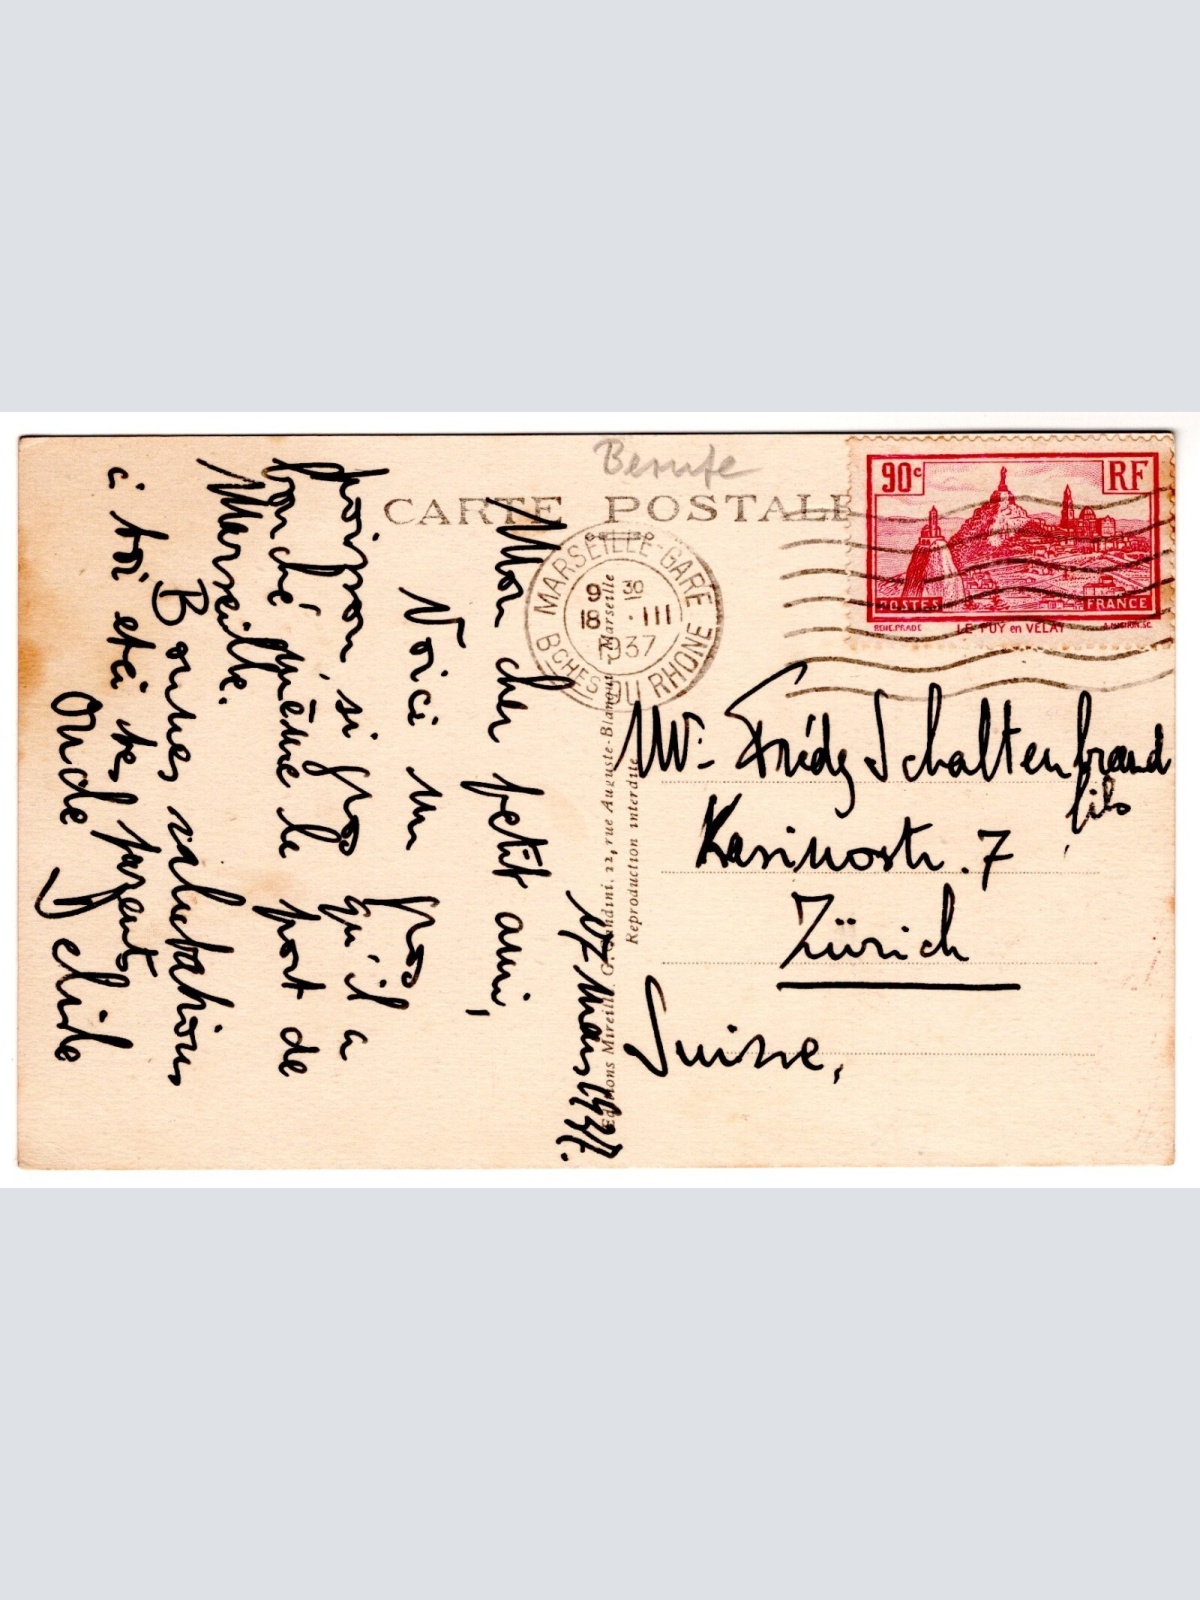 Berufe
CARTE POSTALE
90c
RF
POSTES
FRANCE
LE PUY en VELAY
MARSEILLE-GARE
9 30
18 ·III
1937
BCHES DU RHONE
17 Mars 1937.
Mon cher petit ami,
Voici un gros
poisson, si gros qu'il a
bouché même le port de
Marseille.
Bonnes salutations
à toi et à tes parents
Oncle
Mr. Frédy Schaltenbrand
fils
Kasinostr. 7
Zürich
Suisse,
Editions Mireille, G. Gandini, 22, rue Auguste-Blanqui - Marseille
Reproduction interdite